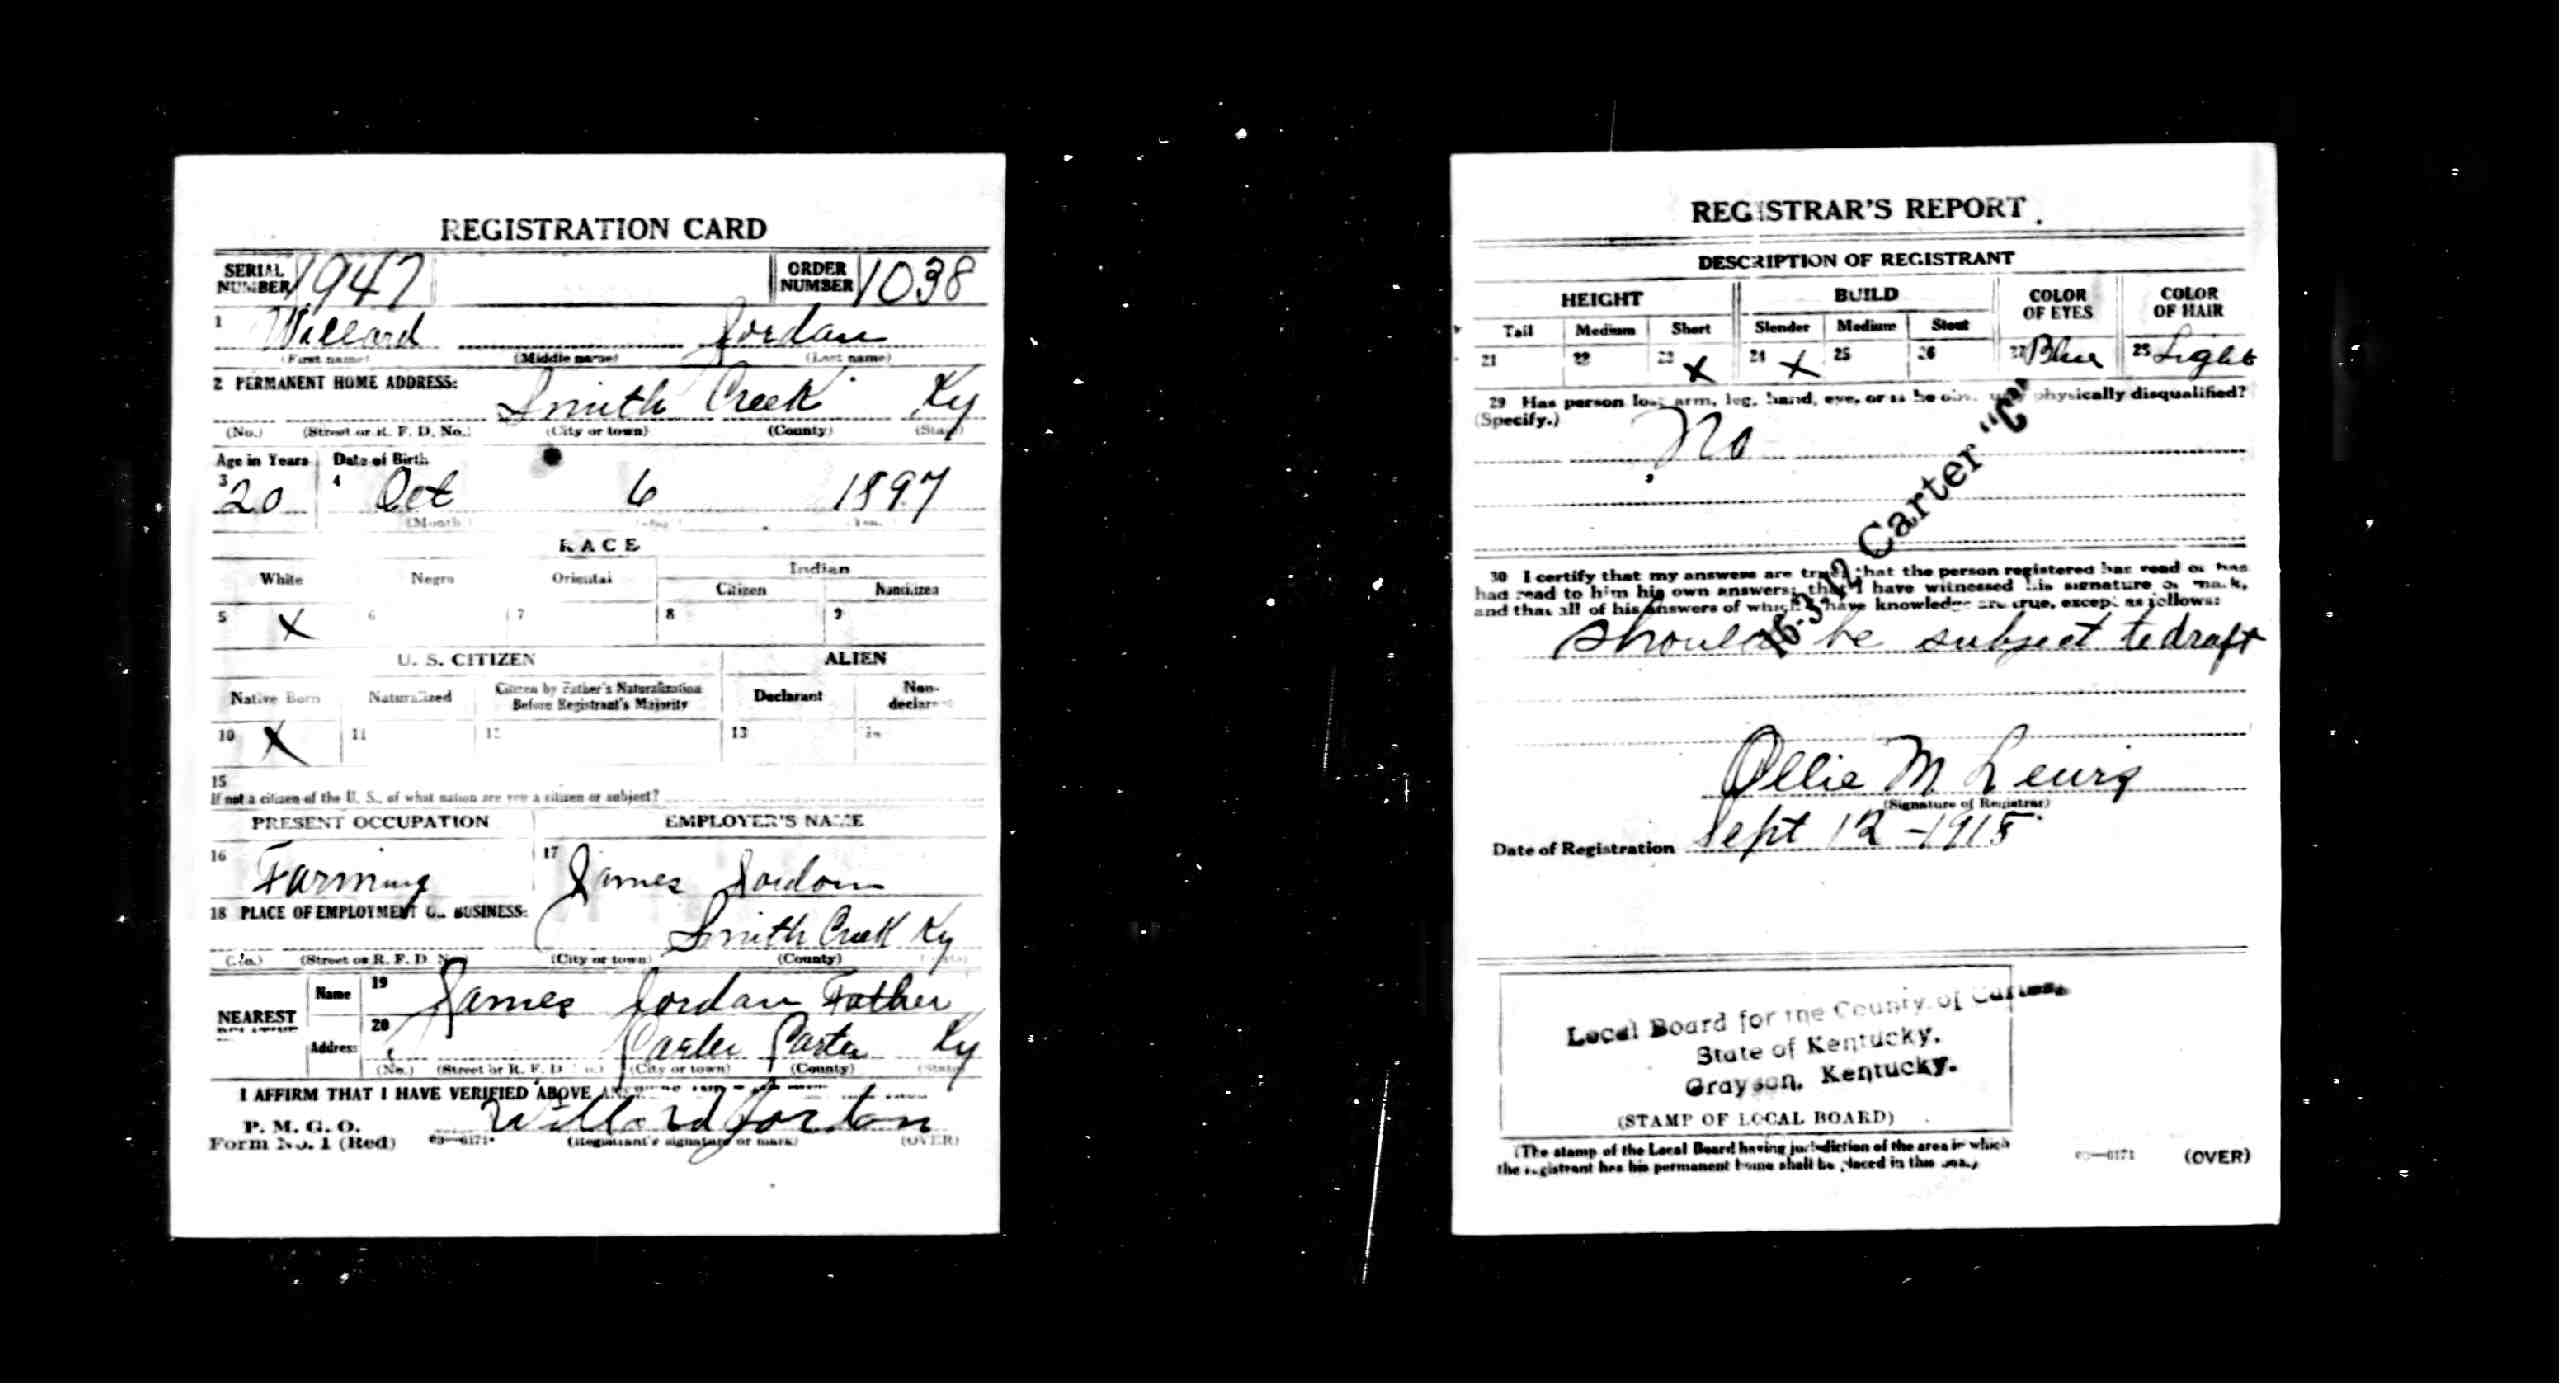 REGISTRATION CARD
SERIAL NUMBER 1947 ORDER NUMBER 1038
1 Willard Jordan
(First name) (Middle name) (Last name)
2 PERMANENT HOME ADDRESS:
Smith Creek Ky
(No.) (Street or R. F. D. No.) (City or town) (County) (State)
Age in Years Date of Birth
3 20 4 Oct 6 1897
(Month)
RACE
White Negro Oriental Indian
Citizen Noncitizen
5 X 6 7 8 9
U. S. CITIZEN ALIEN
Native Born Naturalized Citizen by Father's Naturalization Before Registrant's Majority Declarant Non-declarant
10 X 11 12 13
15
If not a citizen of the U. S., of what nation are you a citizen or subject?
PRESENT OCCUPATION EMPLOYER'S NAME
16 Farming 17 James Jordan
18 PLACE OF EMPLOYMENT OR BUSINESS:
Smith Creek Ky
(No.) (Street or R. F. D. No.) (City or town) (County)
NEAREST RELATIVE Name 19 James Jordan Father
Address 20 Carter Carter Ky
(No.) (Street or R. F. D. No.) (City or town) (County) (State)
I AFFIRM THAT I HAVE VERIFIED ABOVE
P. M. G. O.
Form No. 1 (Red) 03—6171 Willard Jordan
(Registrant's signature or mark) (OVER)
REGISTRAR'S REPORT
DESCRIPTION OF REGISTRANT
HEIGHT BUILD COLOR OF EYES COLOR OF HAIR
Tall Medium Short Slender Medium Stout
21 22 23 X 24 X 25 26 27 Blue 28 Light
29 Has person lost arm, leg, hand, eye, or is he physically disqualified?
(Specify.) No
16-3-12 Carter "C"
30 I certify that my answers are true; that the person registered has read or has
had read to him his own answers; that I have witnessed his signature or mark,
and that all of his answers of which I have knowledge are true, except as follows:
should be subject to draft
Ollie M Lewis
(Signature of Registrar)
Date of Registration Sept 12-1918
Local Board for the County of Carter,
State of Kentucky.
Grayson, Kentucky.
(STAMP OF LOCAL BOARD)
(The stamp of the Local Board having jurisdiction of the area in which
the registrant has his permanent home shall be placed in this box.)
03—6171 (OVER)